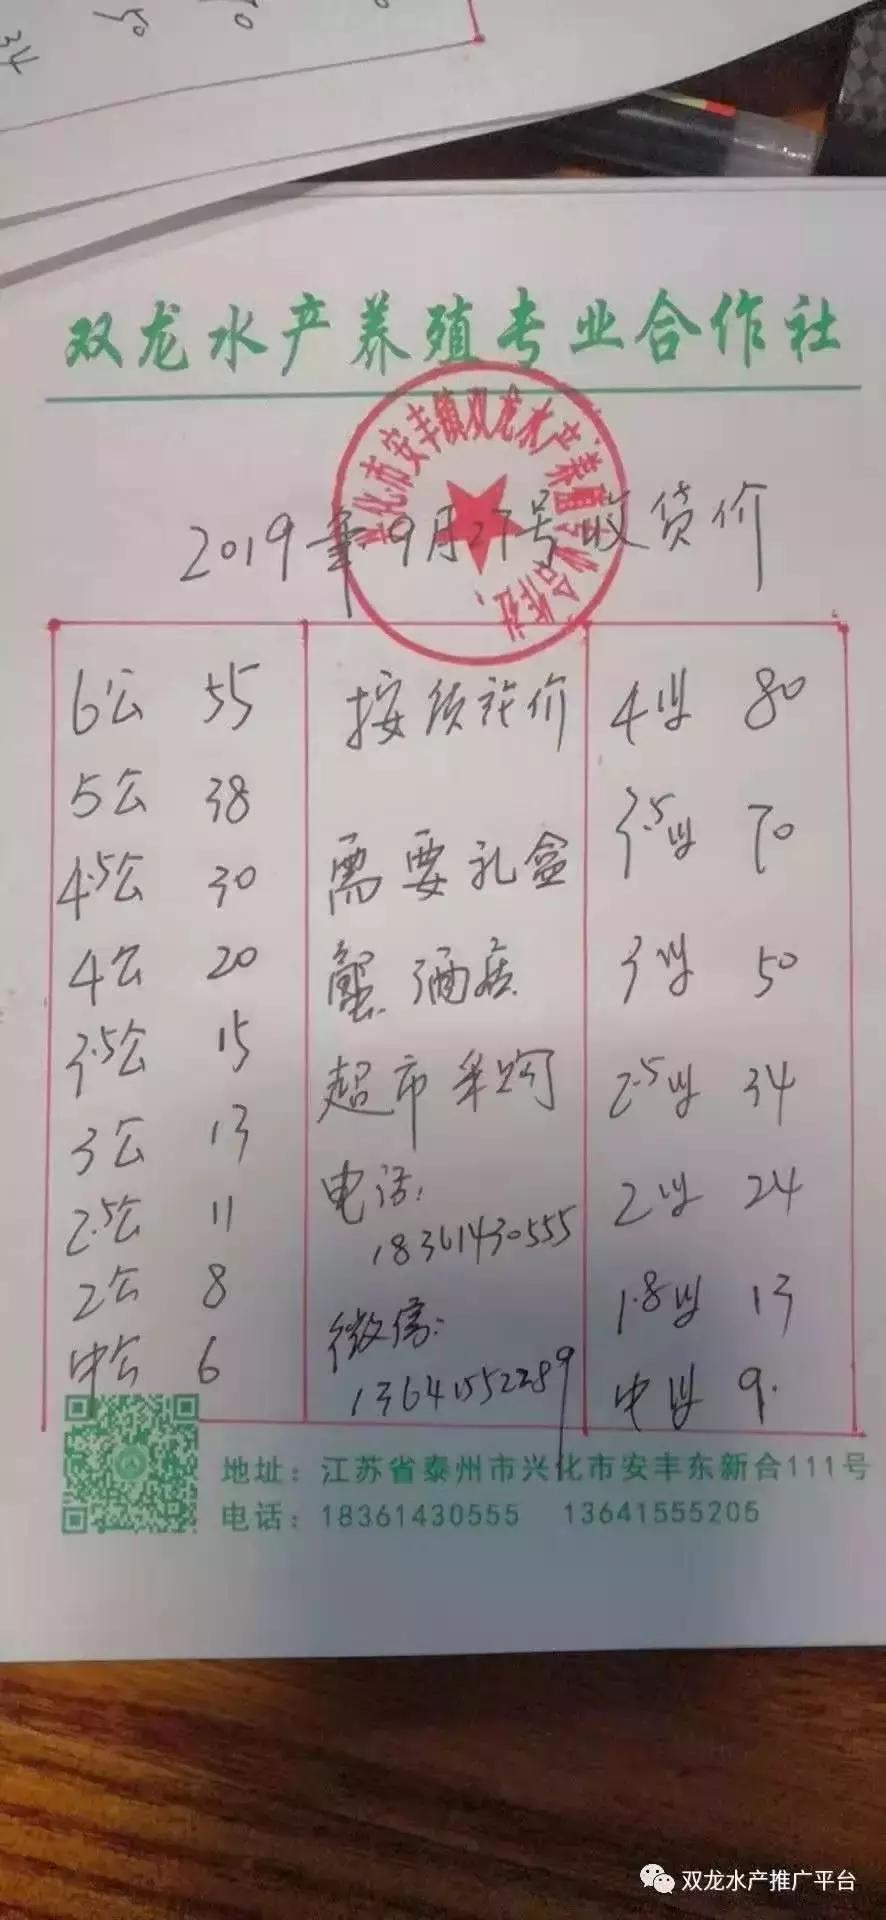 34
50
双龙水产养殖专业合作社
兴化市安丰镇双龙水产养殖专业合作社
2019年9月27号收货价
6公 55
5公 38
4.5公 30
4公 20
3.5公 15
3公 13
2.5公 11
2公 8
中公 6
按质论价
需要礼盒
蟹 酒店
超市采购
电话:
18361430555
微信:
13641552289
4母 80
3.5母 70
3母 50
2.5母 34
2母 24
1.8母 13
中母 9.
地址:江苏省泰州市兴化市安丰东新合111号
电话:18361430555 13641555205
双龙水产推广平台